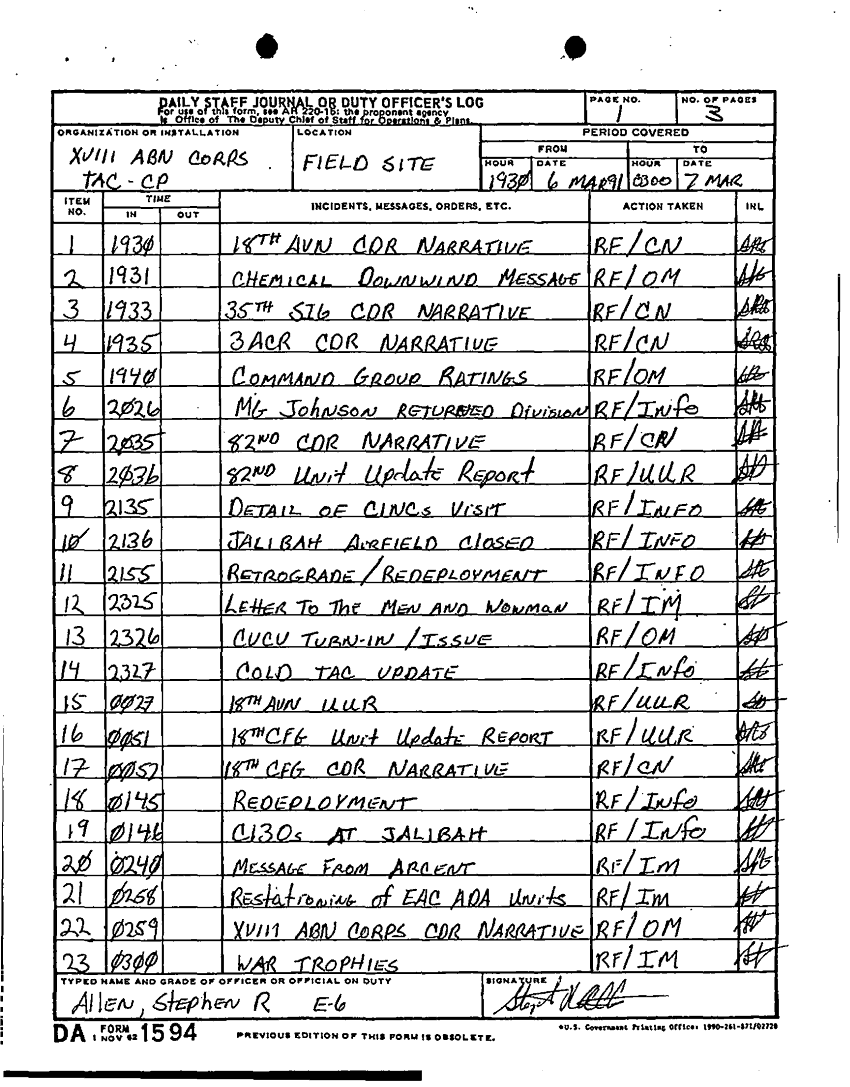 DAILY STAFF JOURNAL OR DUTY OFFICER'S LOG
For use of this form, see AR 220-15; the proponent agency
is Office of The Deputy Chief of Staff for Operations & Plans.
PAGE NO.
1
NO. OF PAGES
3
ORGANIZATION OR INSTALLATION
XVIII ABN CORPS
TAC-CP
LOCATION
FIELD SITE
PERIOD COVERED
FROM
TO
HOUR DATE HOUR DATE
193Ø 6 MAR91 0300 7 MAR
ITEM NO. TIME IN OUT INCIDENTS, MESSAGES, ORDERS, ETC. ACTION TAKEN INL
1 193Ø 18TH AVN CDR NARRATIVE RF/CN
2 1931 CHEMICAL DOWNWIND MESSAGE RF/OM
3 1933 35TH SIG CDR NARRATIVE RF/CN
4 1935 3ACR CDR NARRATIVE RF/CN
5 194Ø COMMAND GROUP RATINGS RF/OM
6 2Ø26 MG JOHNSON RETURNED DIVISION RF/INFO
7 2Ø35 82ND CDR NARRATIVE RF/CN
8 2Ø36 82ND Unit Update REPORT RF/UUR
9 2135 DETAIL OF CINCs VISIT RF/INFO
1Ø 2136 JALIBAH AIRFIELD CLOSED RF/INFO
11 2155 RETROGRADE/REDEPLOYMENT RF/INFO
12 2325 LETTER TO The MEN AND WOWMAN RF/IM
13 2326 CUCV TURN-IN/ISSUE RF/OM
14 2327 COLD TAC UPDATE RF/INFO
15 ØØ27 18TH AVN UUR RF/UUR
16 ØØ51 18TH CFG Unit Update REPORT RF/UUR
17 ØØ52 18TH CFG CDR NARRATIVE RF/CN
18 Ø145 REDEPLOYMENT RF/INFO
19 Ø146 C130s AT JALIBAH RF/INFO
2Ø Ø24Ø MESSAGE FROM ARCENT RF/IM
21 Ø258 Restationing of EAC ADA Units RF/IM
22 Ø259 XVIII ABN CORPS CDR NARRATIVE RF/OM
23 Ø3ØØ WAR TROPHIES RF/IM
TYPED NAME AND GRADE OF OFFICER OR OFFICIAL ON DUTY
Allen, Stephen R E-6
SIGNATURE
DA FORM 1 NOV 62 1594
PREVIOUS EDITION OF THIS FORM IS OBSOLETE.
*U.S. Government Printing Office: 1990-261-871/02728